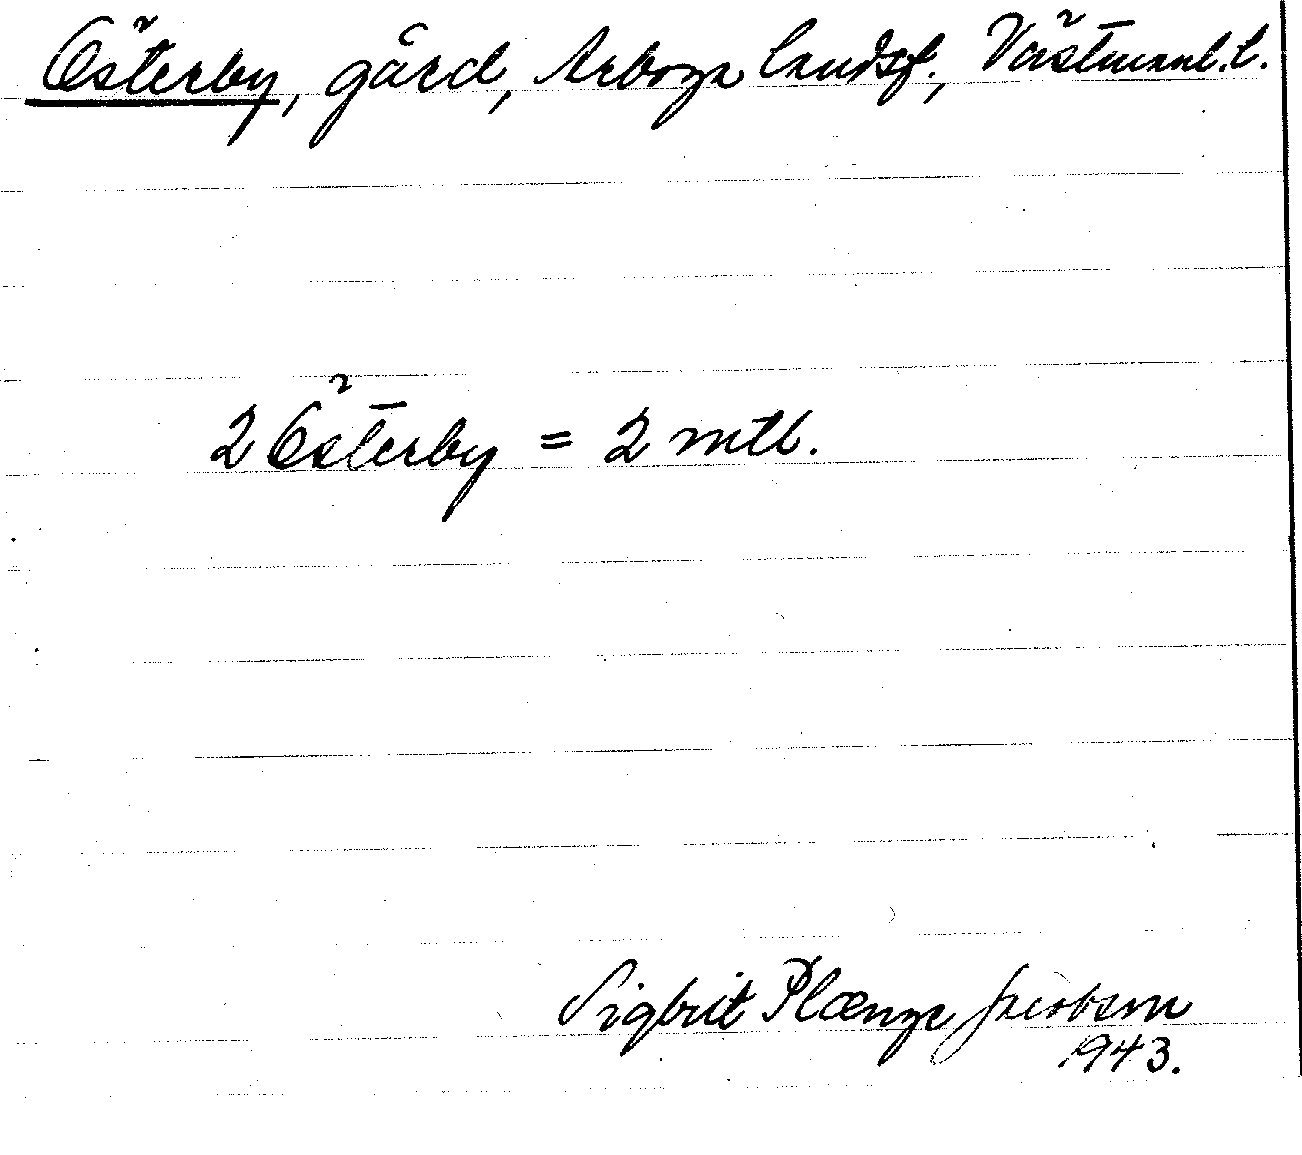 Österby, gård, Arboga landsf., Västmanl. l.
2 Österby = 2 mtl.
Sigbrit Plænge Jacobson
1943.